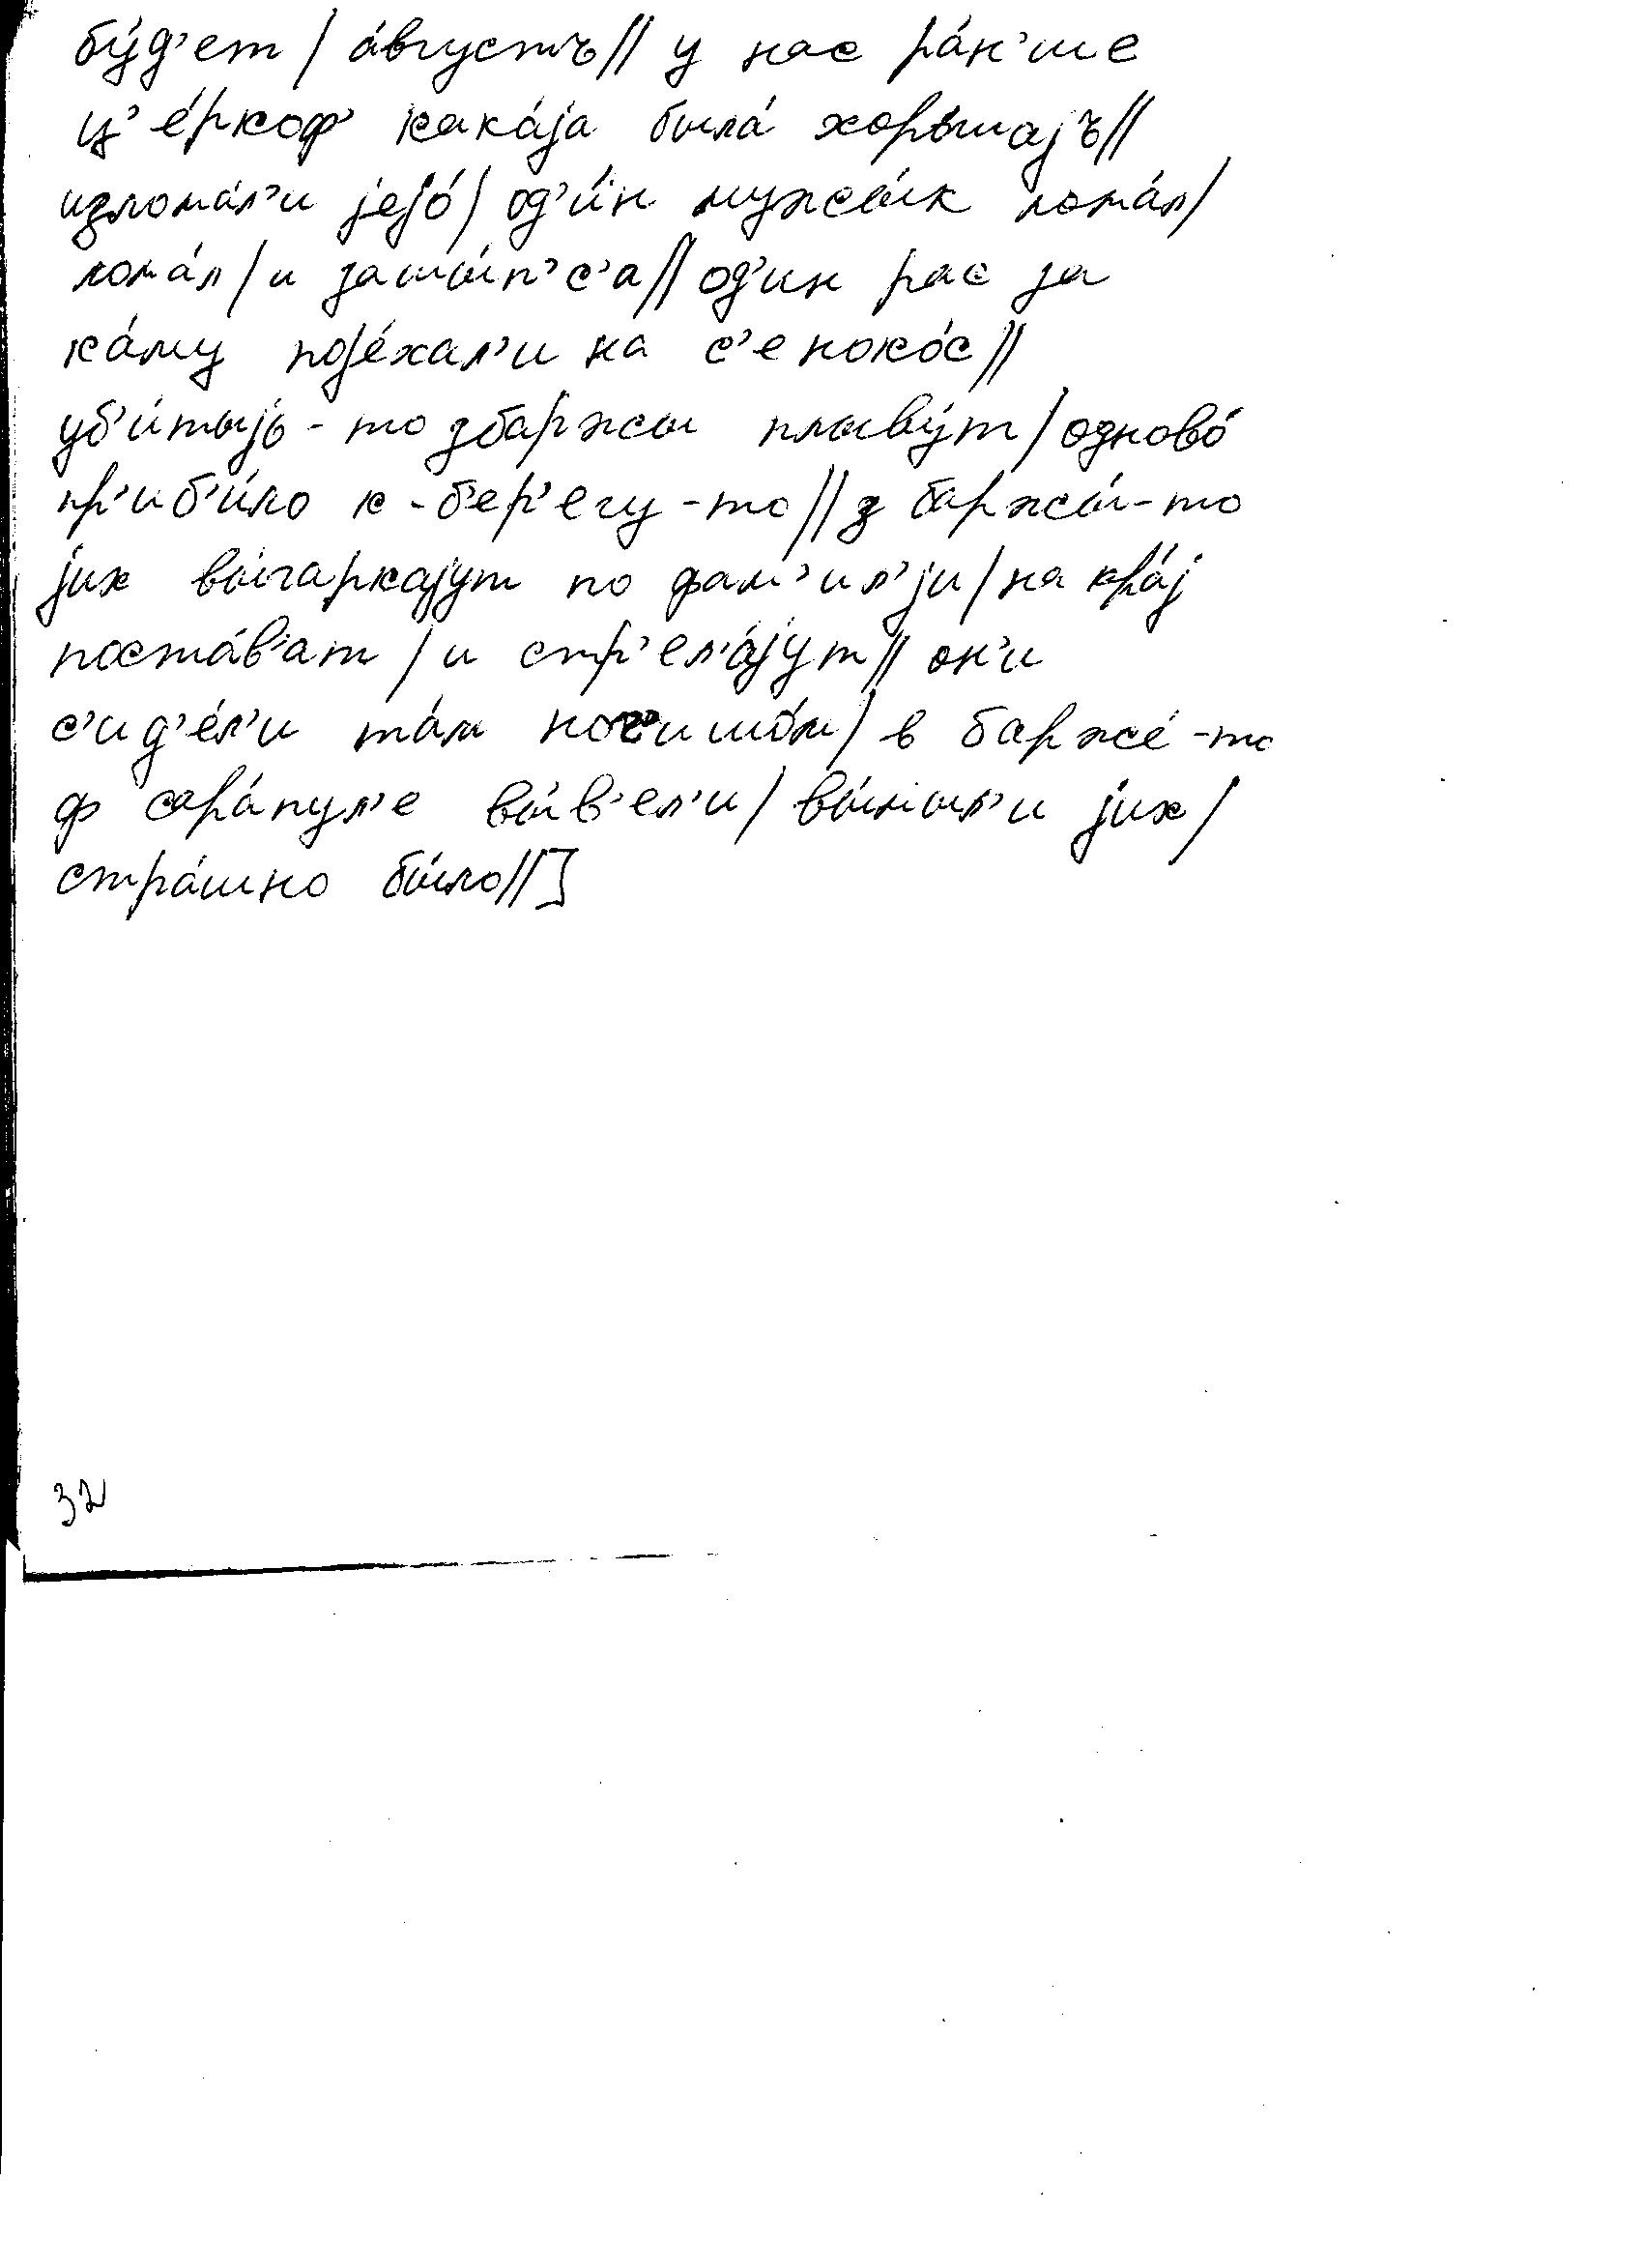 бу́д’ет / а́вгустъ // у нас ра́н’ше
ц’е́ркоф’ кака́jа была́ хоро́шаjъ //
изломáл’и jejó / од’и́н мужы́к лома́л /
лома́л / и зашы́п’с’а // од’ин рас за
ка́му поjéхал’и на с’енокóс //
уб’и́тыjь-то збаржы плыву́т / одново́
пр’иб’и́ло к-б’ер’егу-то // з баржы́-то
jих вы́гаркаjут по фам’ил’jи / на кра́j
поста́в’ат / и стр’ел’а́jут // он’и
с’ид’е́л’и та́м ног’ишо́м / в барже́-то
ф сара́пул’е вы́в’ел’и / вы́мыл’и jих /
стра́шно бы́ло // ]
32